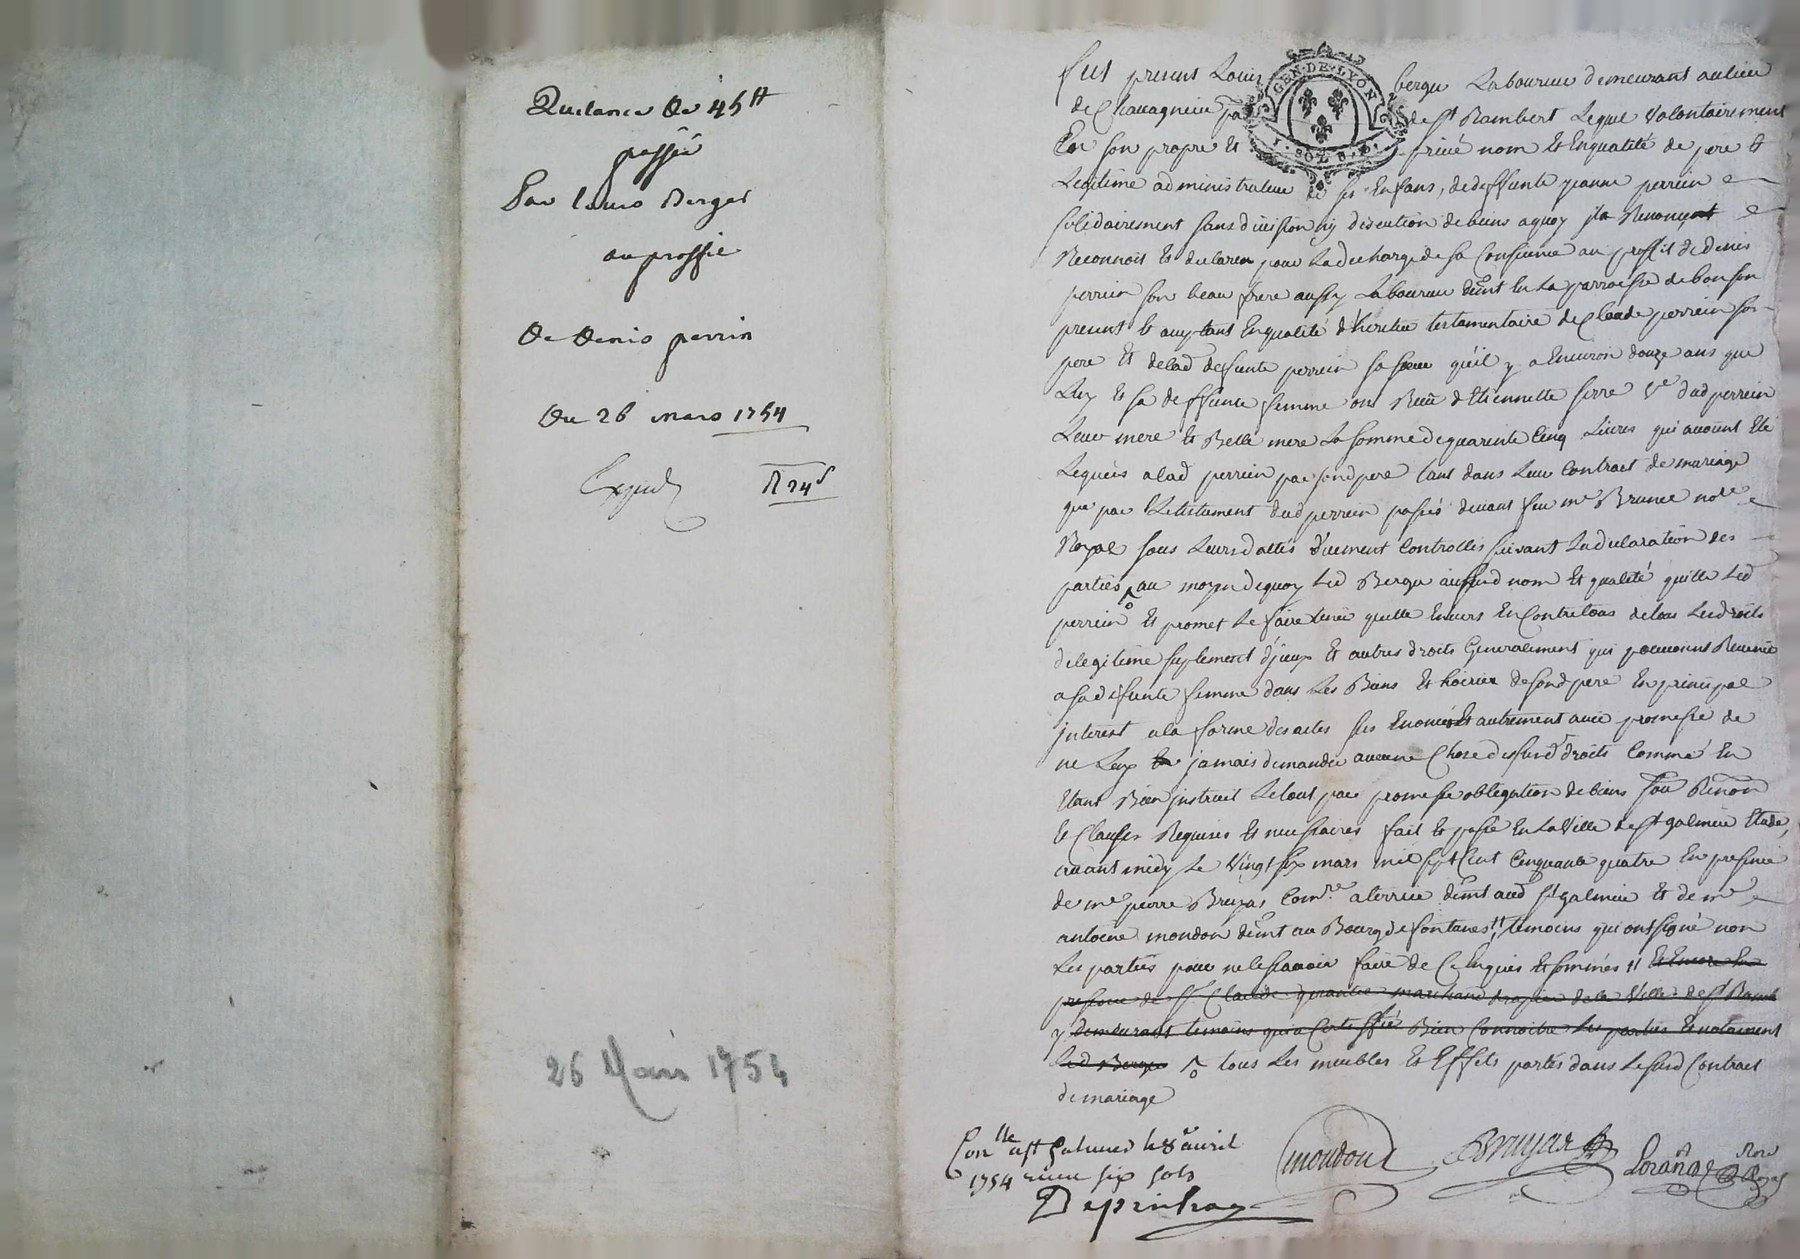 Quitance De 45tt
passée
Par Louis Berger
au proffit
De Denis perrin
Du 26 mars 1754
Expedié
R 24s
26 Mars 1754
GEN·DE·LYON
Fut present Louis berger Laboureur demeurant au lieu
de Chavagneu de st Rambert Lequel volontairement
En son propre Et privé nom Et En qualité de pere Et
Legitime administrateur de ses Enfans, de deffunte jeanne perrein
solidairement sans division ny discution de biens a quoy il a Renoncé
Reconnoit Et declare pour La decharge de sa Consience au proffit de denis
perrein son beau frere aussy Laboureur demt En La parroisse de bonson
present Et acceptant En qualité d'heritier testamentaire de Claude perrein son
pere Et de lad deffunte perrein sa sœur qu'il y a Environ douze ans que
Luy Et sa deffunte femme ont Receu d'Etiennette serre Ve dud perrein
Leur mere Et Belle mere La somme de quarente Cinq Livres qui avoient Eté
Legués a lad perrein par sond pere tant dans Leur Contract de mariage
que par Le testament dud perrein passés devant feu me Brunel nore
Royal sous Leursd dattes duement Controllés suivant La declaration des
parties au moyen de quoy Led Berger aususd nom Et qualité quitte Led
perrein Et promet Le faire tenir quitte Envers Et Contre tous de tous Les droits
de legitime suplement d'jceux Et autres droits Generalement qui pouvoient Revenir
a sa defunte femme dans Les Biens Et hoirie de sond pere En principal
jnterest a la forme des actes sus Enoncés Et autrement avec promesse de
ne Leur jamais demander aucune Chose desusd droits Comme En
Etant Bien jnstruit Le tout par promesse obligation de biens sous Renon
Et Clauses Requises Et necessaires fait Et passé En La Ville de st galmier Etude,
avant midy Le Vingt six mars mil sept Cent Cinquante quatre En presence
de me pierre Bruyas Comre a terrier demt aud st galmier Et de me
antoine mondon demt au Bourg de fontanes temoins qui ont signé non
Les parties pour ne le scavoir faire de Ce Enquis Et sommés Et Encore En
presence de sr Claude marchand drapier de la Ville de st Ramb
y demeurant temoins qui a Certiffié Bien Connoitre Les parties Et notament
Led Berger tous Les meubles Et Effets portés dans Le susd Contract
de mariage
Conlle a st Galmier le 8e avril
1754 receu six sols
Depinhac
mondon
Bruyas